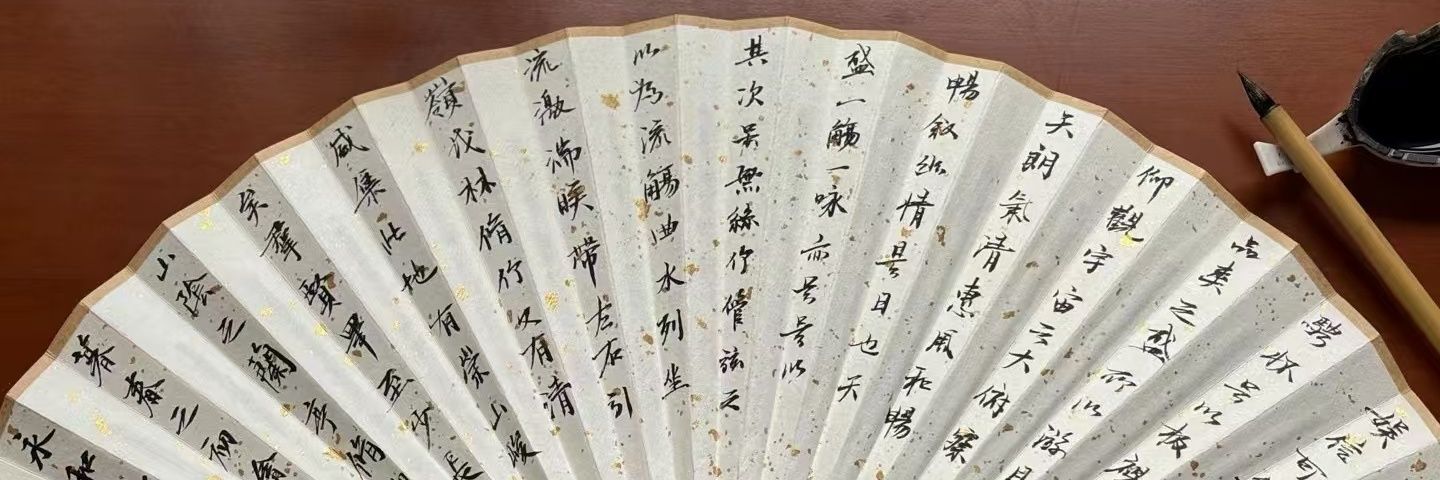 永和
暮春之初會
山陰之蘭亭脩
矣羣賢畢至少長
咸集此地有崇山峻
嶺茂林脩竹又有清
流激湍暎帶左右引
以為流觴曲水列坐
其次無絲竹管弦之
盛一觴一咏亦以
暢敘幽情是日也天
朗氣清惠風和暢
仰觀宇宙之大俯察
品類之盛所以游目
騁懷足以極視
娛信可